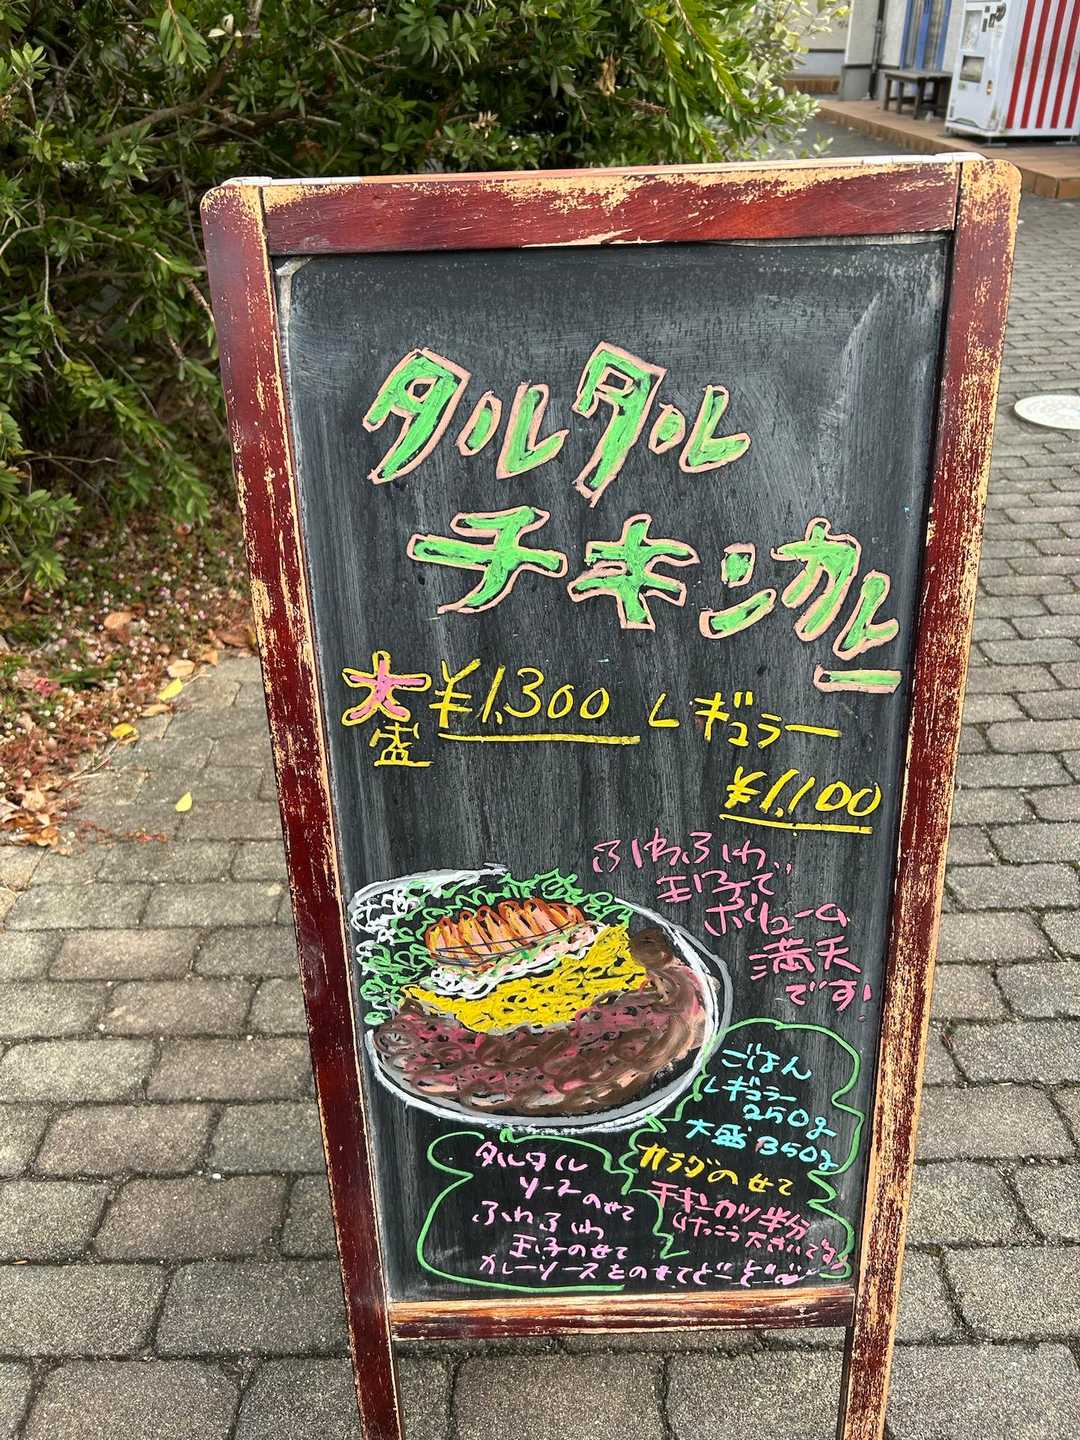 タルタル
チキンカレー
大盛 ¥1,300 レギュラー
¥1,100
ふわふわ
玉子で
ボリューム
満天
です!
ごはん
レギュラー
250g
大盛 350g
タルタル
ソースのせて
ふわふわ
玉子のせて
カレーソースをのせてどーぞ
サラダのせて
チキンカツ半分
けっこう大きいです